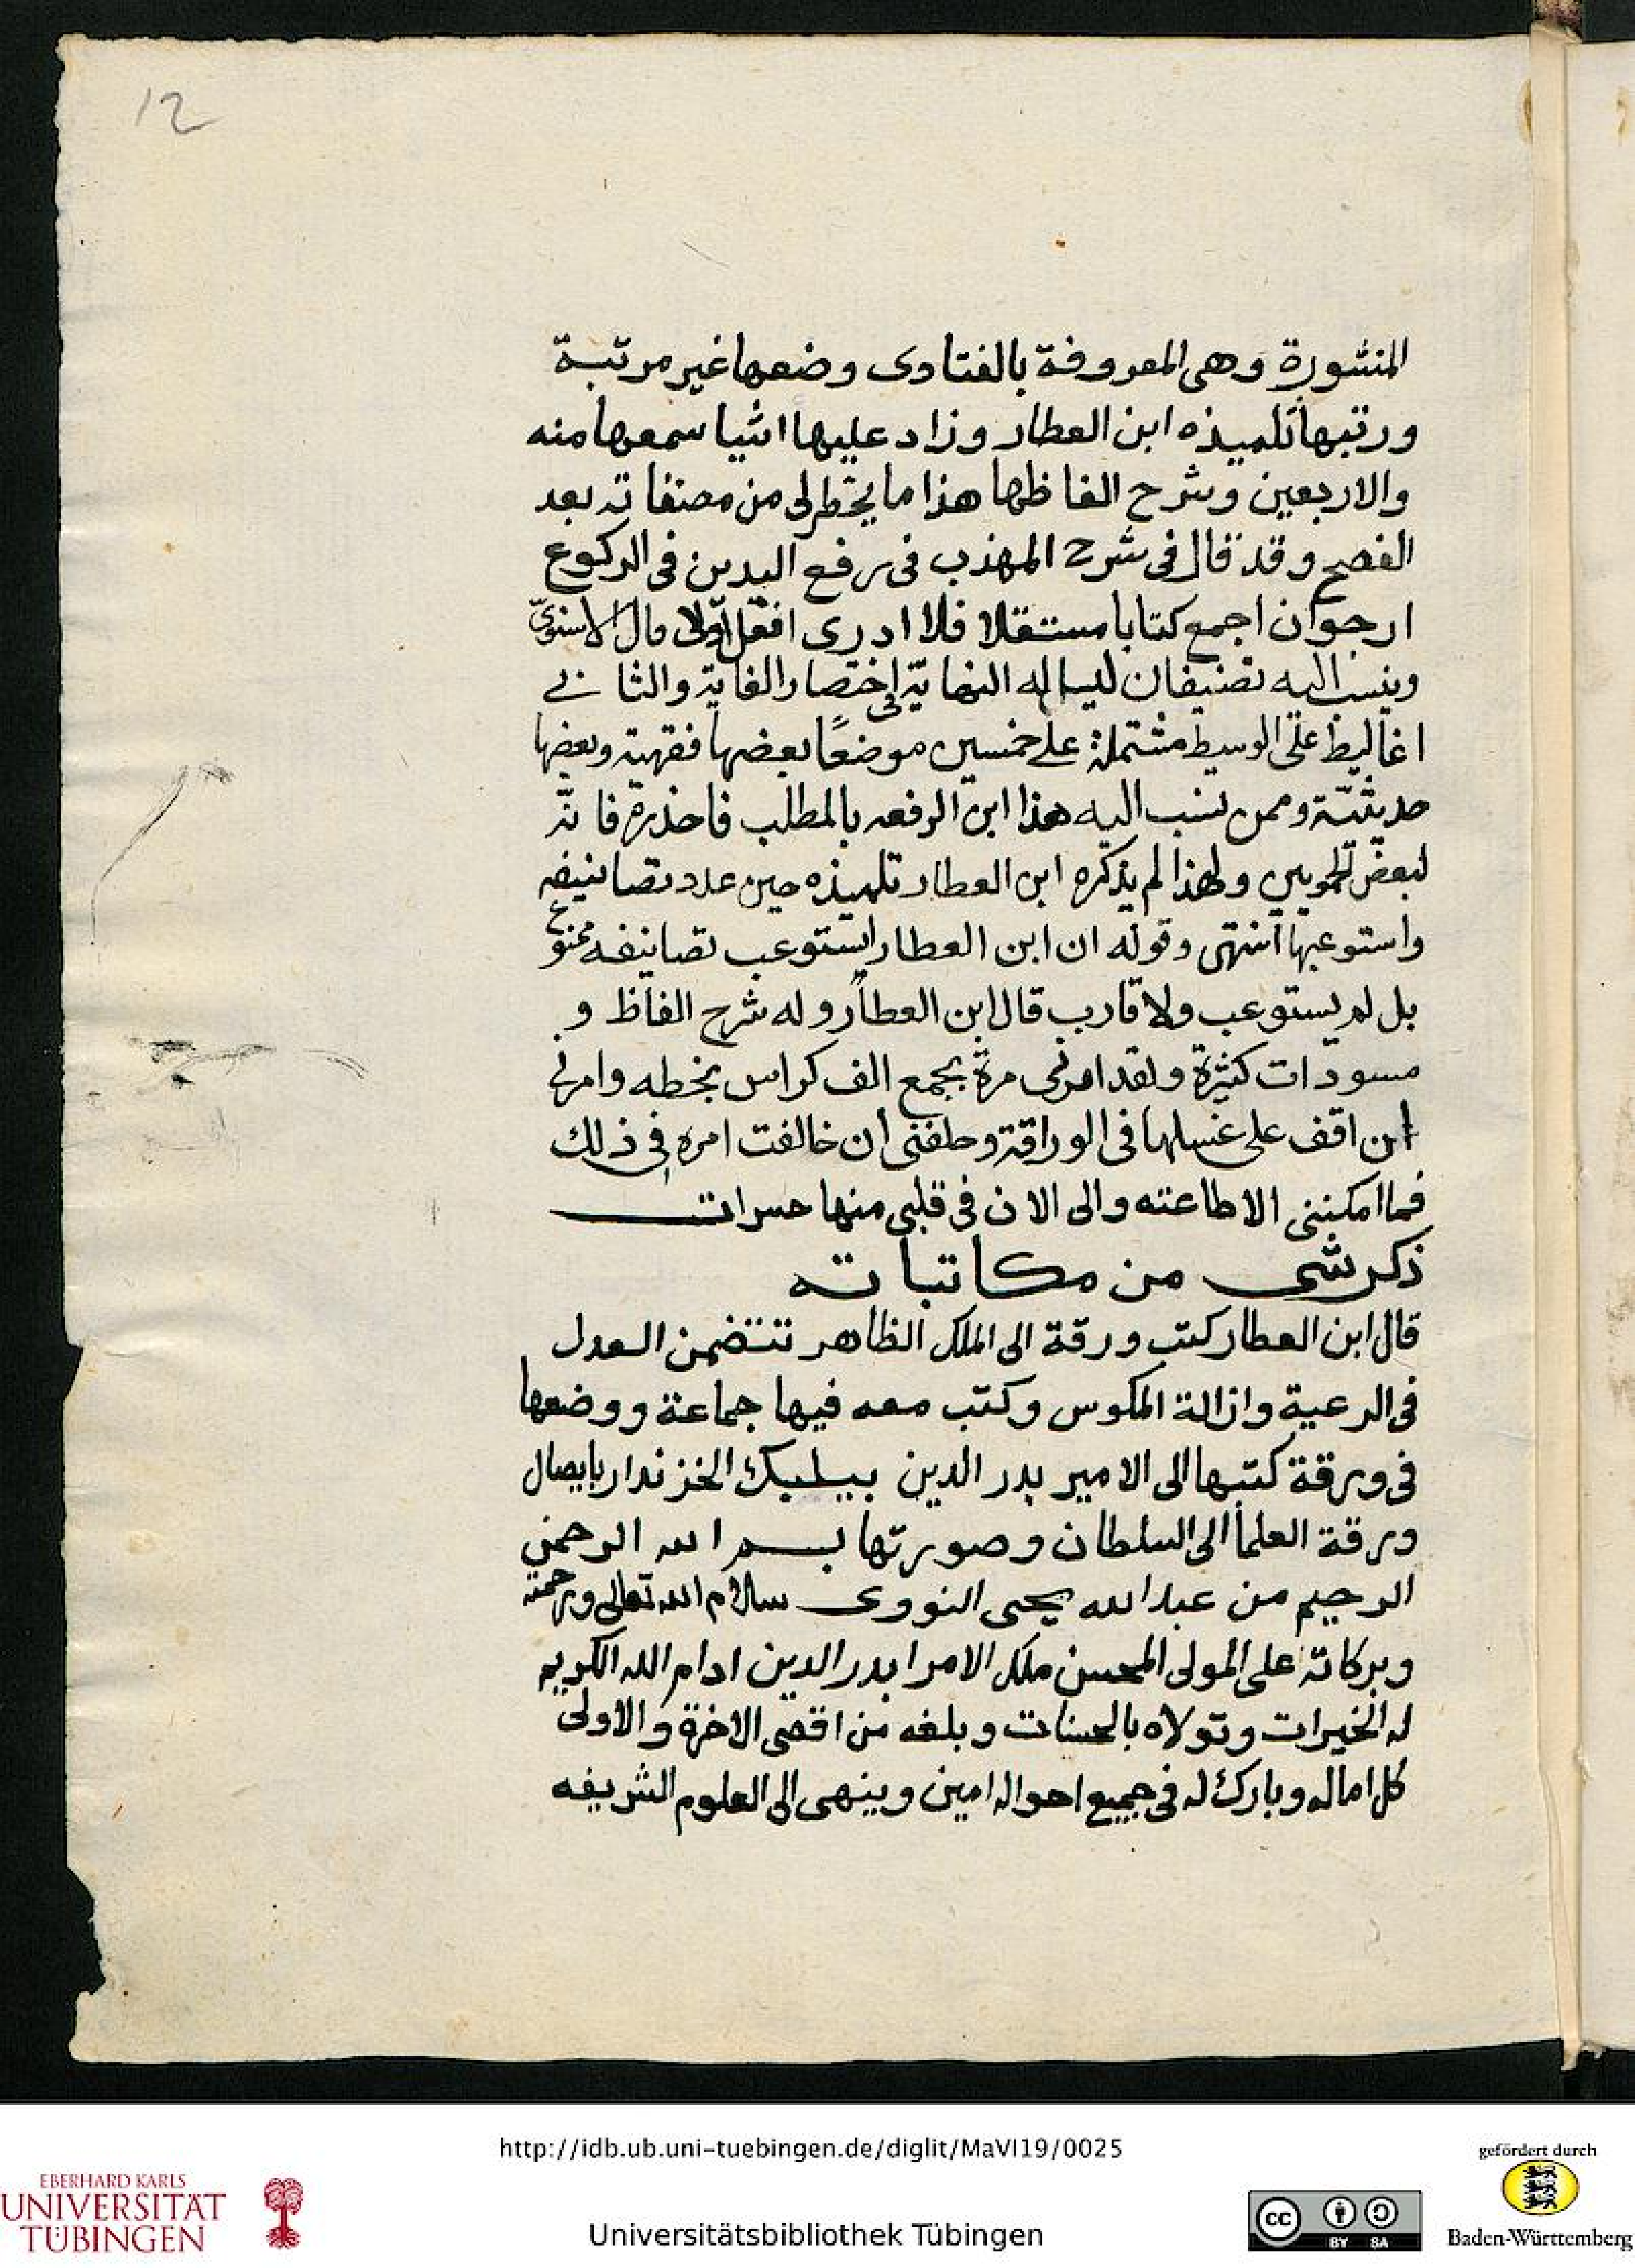 12
المنثورة وهى المعروفة بالفتاوى وضعها غير مرتبة
ورتبها تلميذه ابن العطار وزاد عليها اشيا سمعها منه
والاربعين وشرح الفاظها هذا ما يخطر لى من مصنفاته بعد
الفصح وقد قال فى شرح المهذب فى رفع اليدين فى الركوع
ارجو ان اجمع كتابا مستقلا فلا ادرى افعل اولا قال الاسنوىّ
وينسب اليه تصنيفان ليسا له النهاية فى اختصار الغاية والثانى
اغاليط على الوسيط مشتملة على خمسين موضعًا بعضها فقهية وبعضها
حديثيّة وممن نسب اليه هذا ابن الرفعه بالمطلب فاحذره فانه
لبعض الحمويين ولهذا لم يذكره ابن العطار تلميذه حين عدد تصانيفه
واستوعبها انتهى وقوله ان ابن العطار استوعب تصانيفه ممنوع
بل لم يستوعب ولا قارب قال ابن العطار وله شرح الفاظ و
مسودات كثيرة ولقد امرنى مرة بجمع الف كراس بخطه وامرنى
ان اقف على غسلها فى الوراقة وحلفنى ان خالفت امره فى ذلك
فما امكننى الا طاعته والى الان فى قلبى منها حسرات
ذكر شى من مكاتباته
قال ابن العطار كتب ورقة الى الملك الظاهر تتضمن العدل
فى الرعية وازالة المكوس وكتب معه فيها جماعة ووضعها
فى ورقة كتبها الى الامير بدر الدين بيلبك الخزندار بايصال
ورقة العلما الى السلطان وصورتها بسم الله الرحمن
الرحيم من عبد الله يحيى النووى سلام الله تعالى ورحمته
وبركاته على المولى المحسن ملك الامرا بدر الدين ادام الله الكريم
له الخيرات وتولاه بالحسنات وبلغه من اقصى الاخرة والاولى
كل اماله وبارك له فى جميع احواله امين وينهى الى العلوم الشريفه
http://idb.ub.uni-tuebingen.de/diglit/MaVI19/0025
gefördert durch
EBERHARD KARLS
UNIVERSITÄT
TÜBINGEN
Universitätsbibliothek Tübingen
cc BY SA
Baden-Württemberg